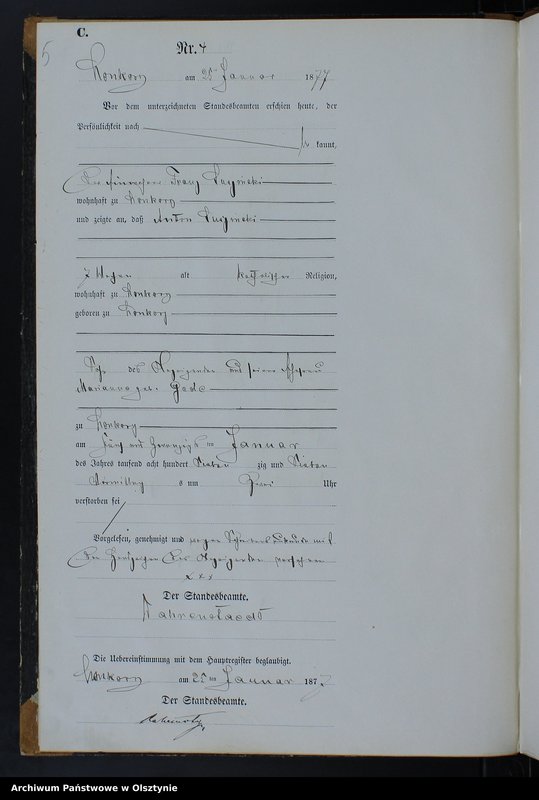 C.
5
Nr. 4
Lonkorz am 25 Januar 1877
Vor dem unterzeichneten Standesbeamten erschien heute, der
Persönlichkeit nach
be kannt,
Der Franz
wohnhaft zu Lonkorz
und zeigte an, daß Anton
7 Wochen alt katholischer Religion,
wohnhaft zu Lonkorz
geboren zu Lonkorz
Sohn des Anzeigenden und seiner Ehefrau
Marianna geb.
zu Lonkorz
am fünf und zwanzigsten Januar
des Jahres tausend acht hundert sieben zig und sieben
Vormittag s um Uhr
verstorben sei
Vorgelesen, genehmigt und wegen mit
den Handzeichen des Anzeigenden versehen
x x x
Der Standesbeamte.
Die Uebereinstimmung mit dem Hauptregister beglaubigt.
Lonkorz am 25 ten Januar 1877
Der Standesbeamte.
Archiwum Państwowe w Olsztynie